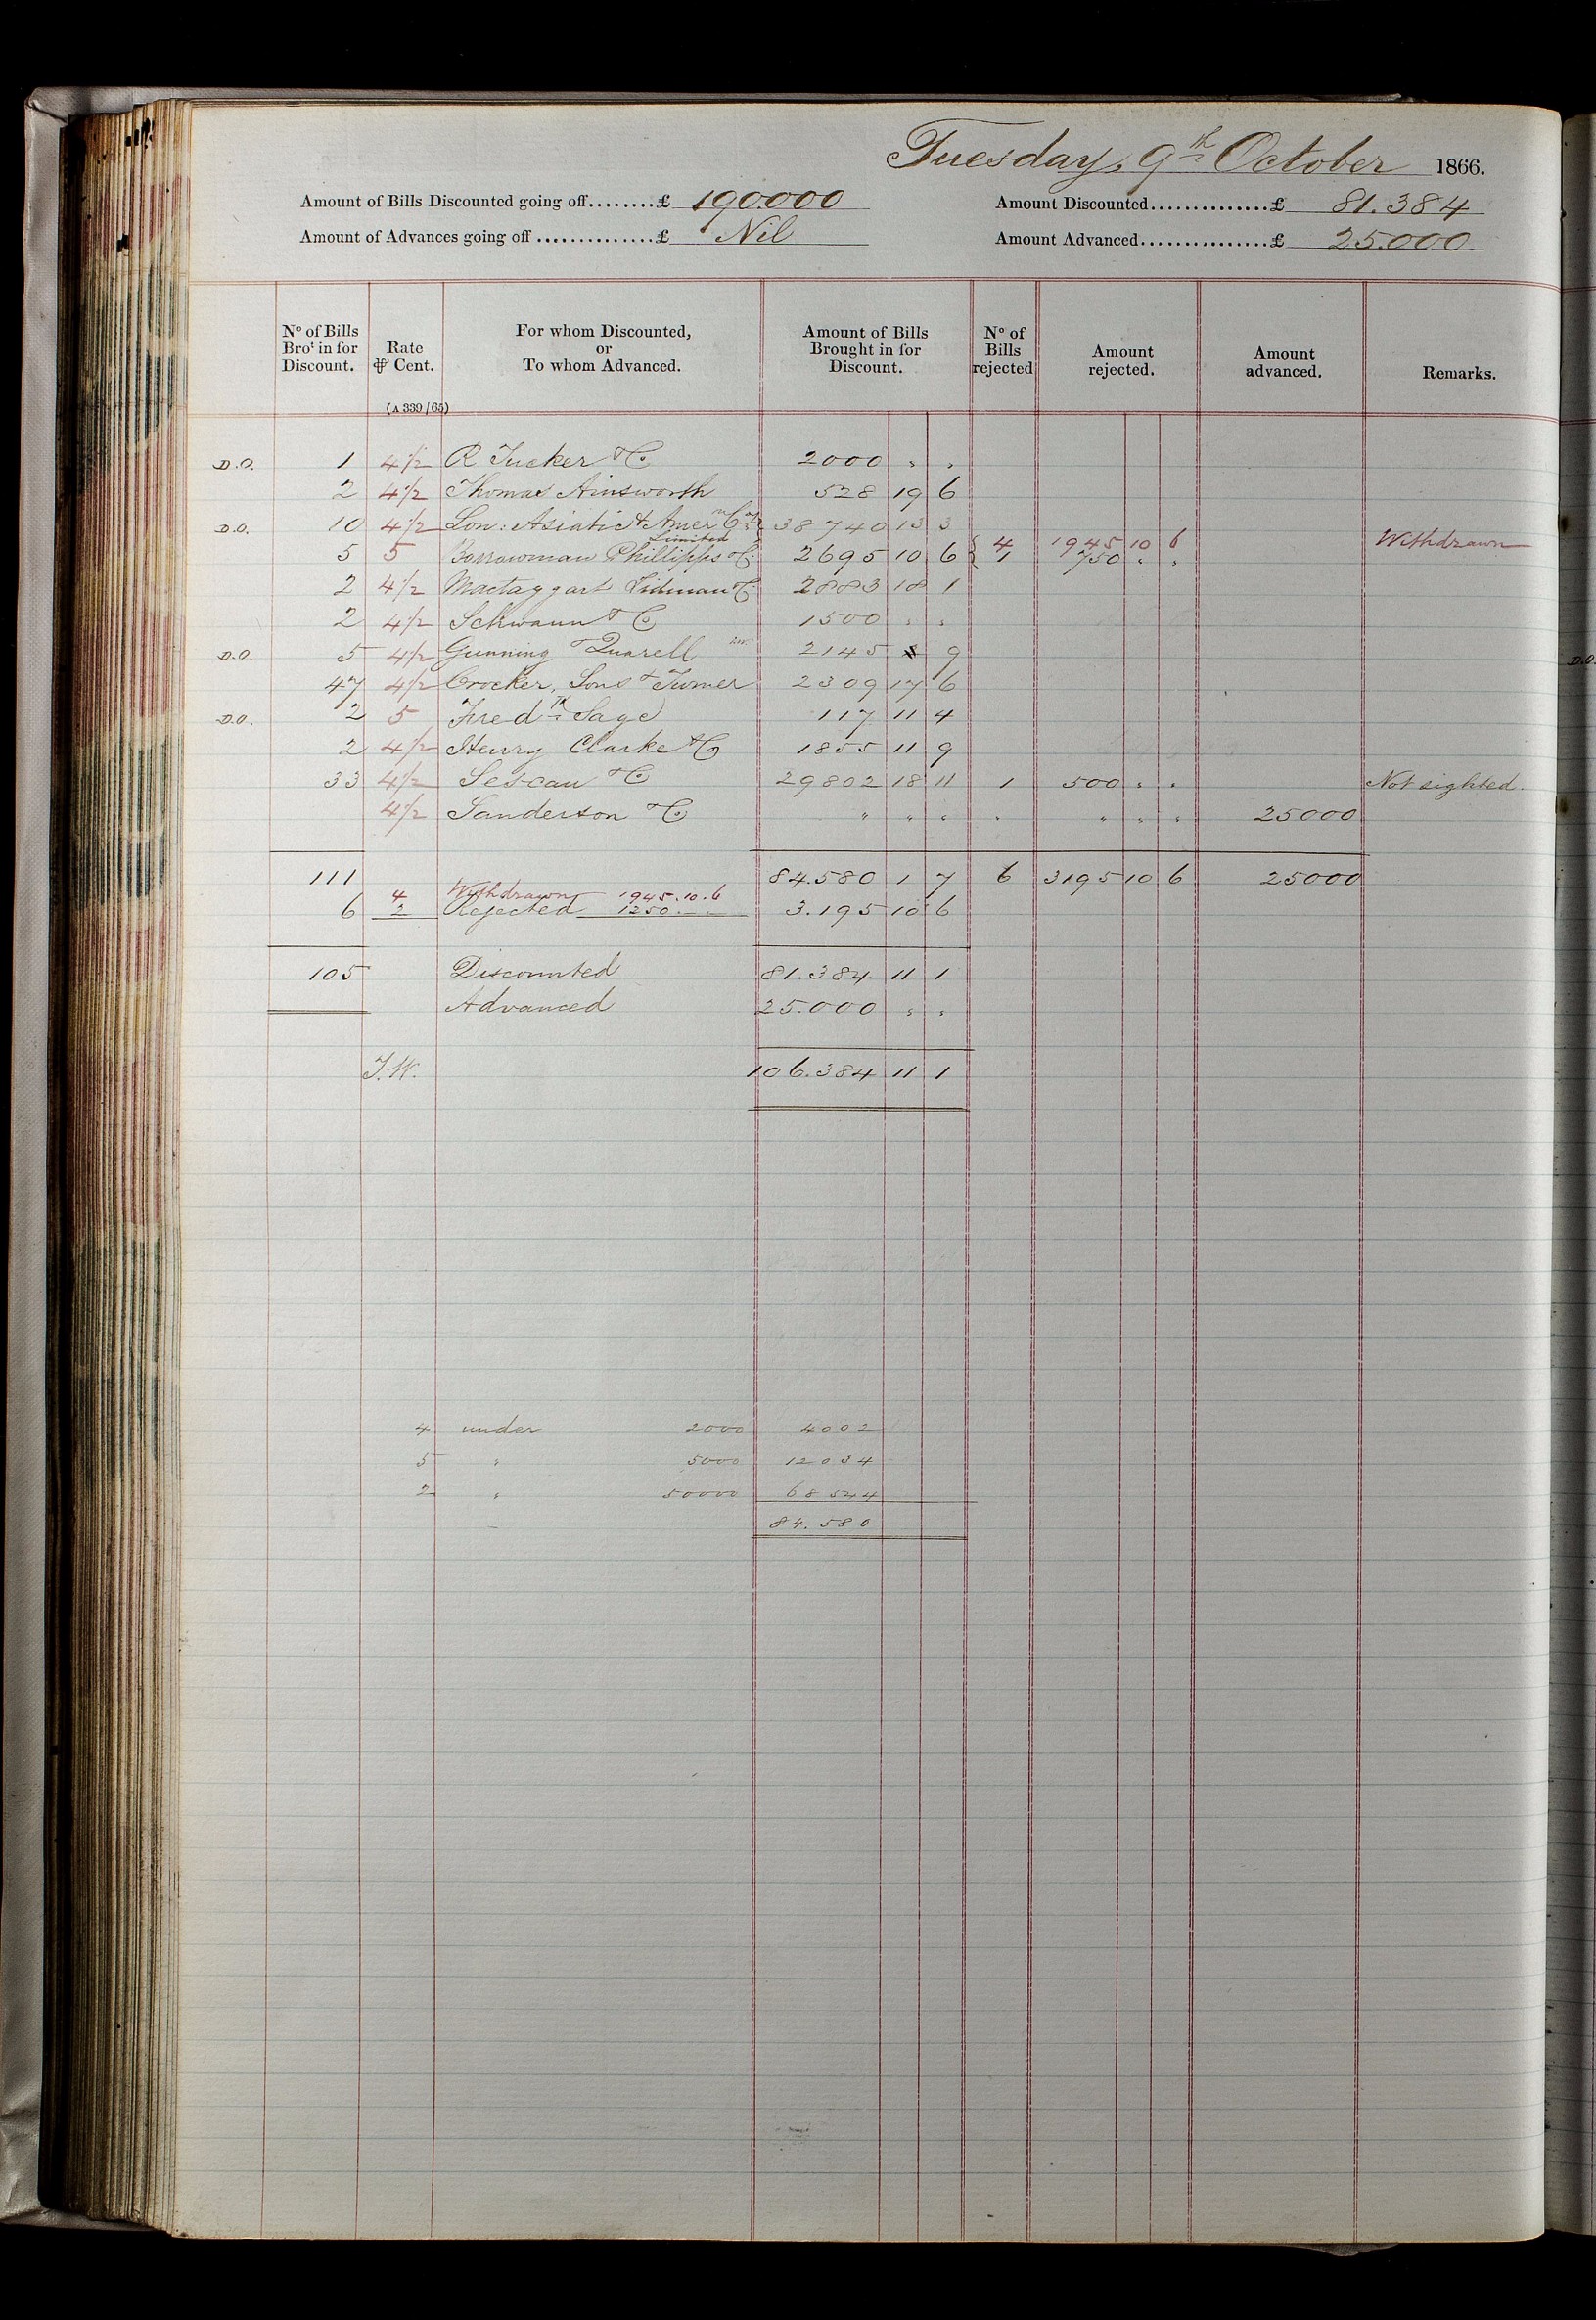 Tuesday, 9th October 1866.
Amount of Bills Discounted going off........£ 190.000 Amount Discounted...............£ 81.384
Amount of Advances going off ..............£ Nil Amount Advanced................£ 25.000
No of Bills Brot in for Discount. Rate ⅌ Cent. (A 339/65) For whom Discounted, or To whom Advanced. Amount of Bills Brought in for Discount. No of Bills rejected Amount rejected. Amount advanced. Remarks.
D.O. 1 4½ R Tucker & Co 2000 " "
2 4½ Thomas Ainsworth 528 19 6
D.O. 10 4½ Lon: Asiatic & Amern Coy Limited 38740 13 3
4 1945 10 6 Withdrawn
5 5 Borrowman Phillipps & Co 2695 10 6 1 750 " "
2 4½ Mactaggart Tidman & Co 2883 18 1
2 4½ Schwann & Co 1500 " "
D.O. 5 4½ Gunning & Quarell 2145 8 9
47 4½ Crocker, Sons & Turner 2309 17 6
D.O. 2 5 Fredk Sage 117 11 4
2 4½ Henry Clarke & Co 1855 11 9
33 4½ Sescau & Co 29802 18 11 1 500 " " Not sighted.
4½ Sanderson & Co " " " " " " " 25000
111 84.580 1 7 6 3195 10 6 25000
4 Withdrawn 1945.10.6
6 2 Rejected 1250.-.- 3.195 10 6
105 Discounted 81.384 11 1
Advanced 25.000 " "
J.W. 106.384 11 1
4 under 2000 4002
5 " 5000 12034
2 " 50000 68544
84.580
D.O.